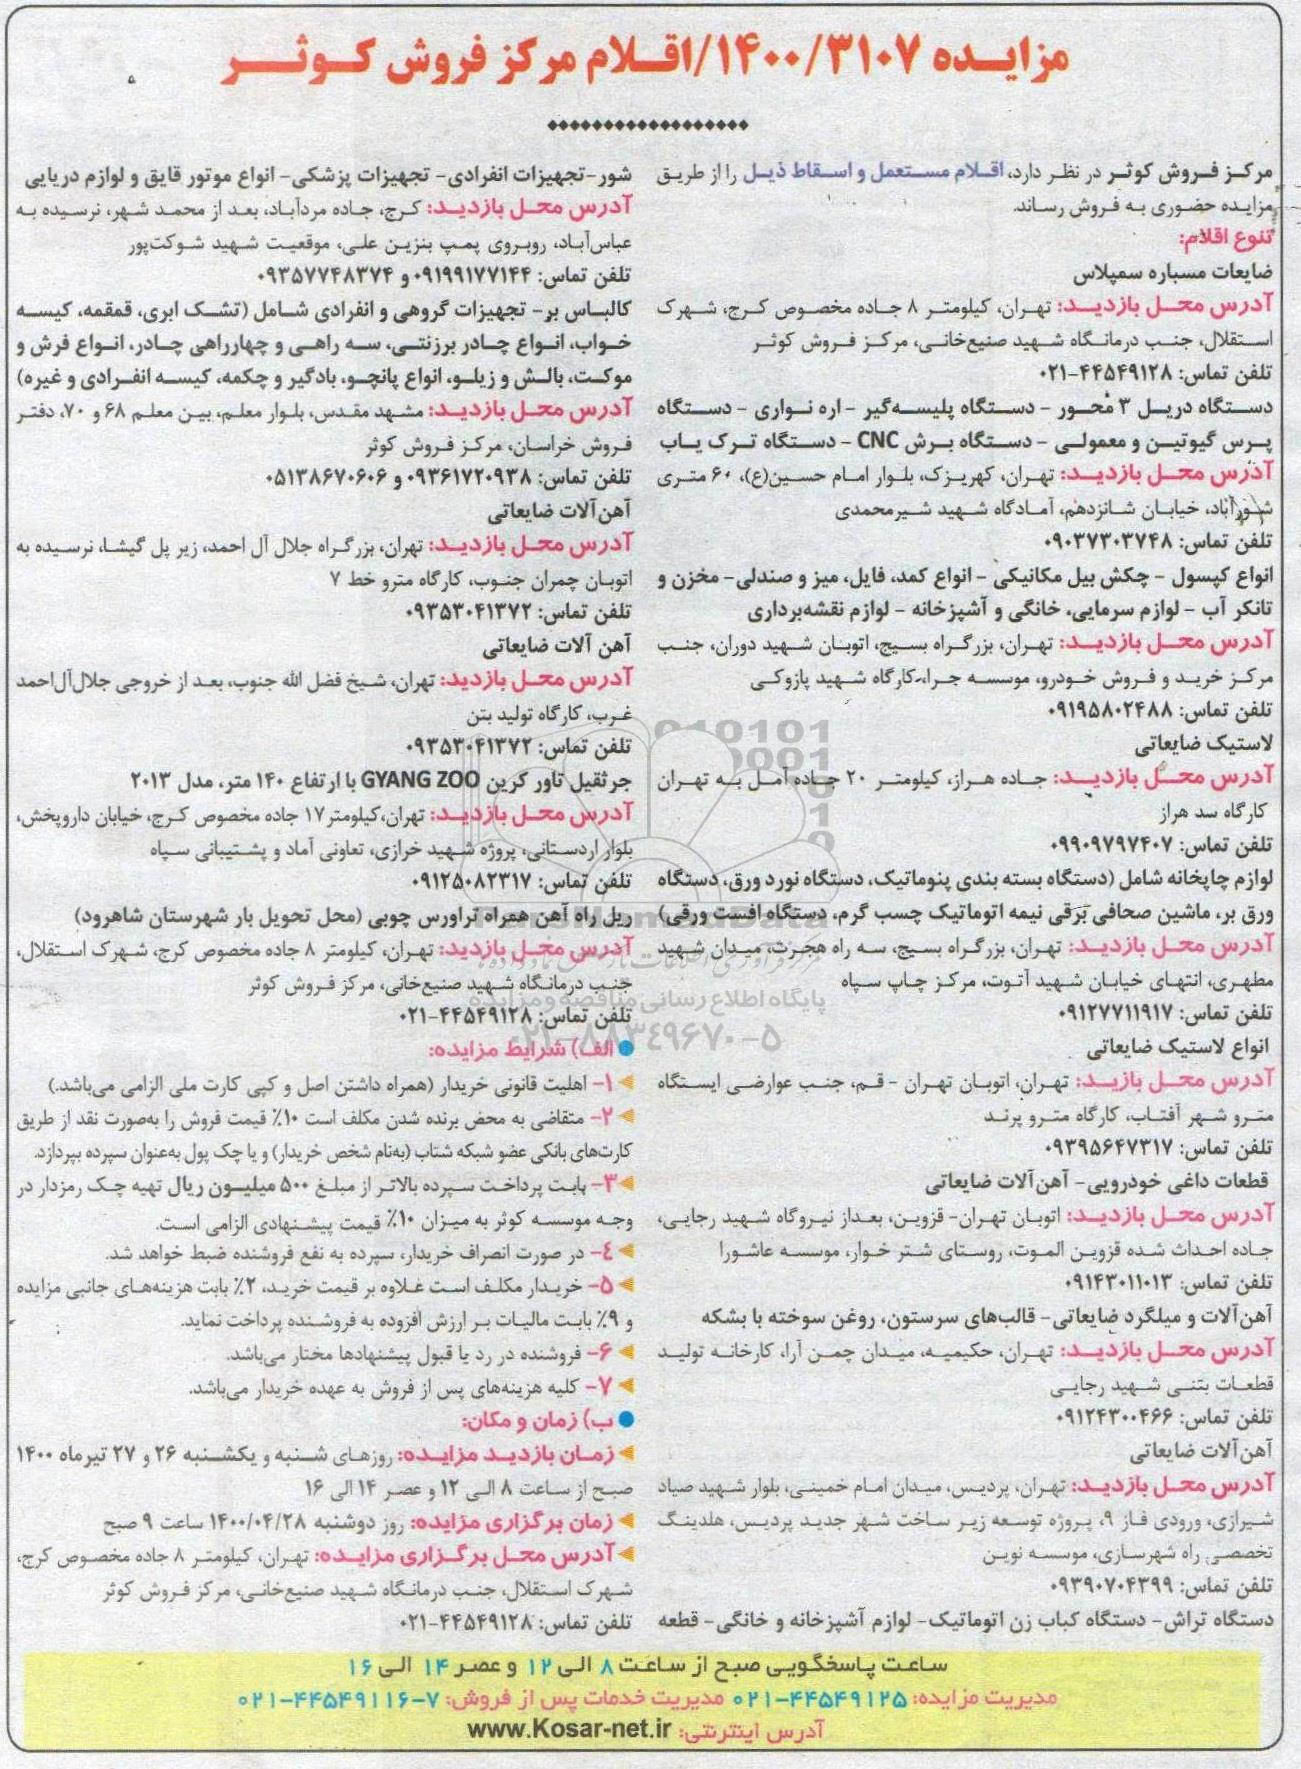 مزایـده ۱۴۰۰/۳۱۰۷/اقـلام مرکز فروش کـوثـر
مرکـز فـروش کوثـر در نظر دارد، اقـلام مسـتعمل و اسـقاط ذیـل را از طریـق
مزایده حضوری به فروش رساند.
تنوع اقلام:
ضایعات مسباره سمپلاس
آدرس محـل بازدیـد: تهـران، کیلومتـر ۸ جاده مخصوص کرج، شـهرک
اسـتقلال، جنب درمانـگاه شـهید صنیع‌خانـی، مرکـز فـروش کوثـر
تلفن تماس: ۴۴۵۴۹۱۲۸-۰۲۱
دسـتگاه دریـل ۳ محـور - دسـتگاه پلیسـه‌گیر - اره نـواری - دسـتگاه
پـرس گیوتیـن و معمولـی - دسـتگاه برش CNC - دسـتگاه تـرک یـاب
آدرس محـل بازدیـد: تهـران، کهریـزک، بلـوار امـام حسـین(ع)، ۶۰ متـری
شورآباد، خیابـان شـانزدهم، آمـادگاه شـهید شـیرمحمدی
تلفن تماس: ۰۹۰۳۷۳۰۳۷۴۸
انواع کپسول - چکش بیل مکانیکی - انواع کمد، فایل، میز و صندلی- مخزن و
تانکر آب - لوازم سرمایی، خانگی و آشپزخانه - لوازم نقشه‌برداری
آدرس محـل بازدیـد: تهـران، بزرگـراه بسـیج، اتوبـان شـهید دوران، جنـب
مرکـز خریـد و فـروش خـودرو، موسسـه حـرا، کارگاه شـهید پازوکـی
تلفن تماس: ۰۹۱۹۵۸۰۲۴۸۸
لاستیک ضایعاتی
آدرس محـل بازدیـد: جـاده هـراز، کیلومتـر ۲۰ جـاده آمـل بـه تهـران
کارگاه سد هراز
تلفن تماس: ۰۹۹۰۹۷۹۷۴۰۷
لوازم چاپخانه شامل (دستگاه بسته بندی پنوماتیک، دستگاه نورد ورق، دستگاه
ورق بر، ماشین صحافی برقی نیمه اتوماتیک چسب گرم، دستگاه افست ورقی)
آدرس محـل بازدیـد: تهـران، بزرگـراه بسـیج، سـه راه هجـرت، میـدان شـهید
مطهـری، انتهـای خیابـان شـهید آتـوت، مرکـز چـاپ سـپاه
تلفن تماس: ۰۹۱۲۷۷۱۱۹۱۷
انواع لاستیک ضایعاتی
آدرس محـل بازیـد: تهـران، اتوبـان تهـران - قـم، جنـب عوارضـی ایسـتگاه
متـرو شـهر آفتـاب، کارگاه متـرو پرنـد
تلفن تماس: ۰۹۳۹۵۶۴۷۳۱۷
قطعات داغی خودرویی- آهن‌آلات ضایعاتی
آدرس محـل بازدیـد: اتوبـان تهـران- قزویـن، بعـداز نیـروگاه شـهید رجایـی،
جاده احداث شده قزوین الموت، روستای شتر خوار، موسسه عاشورا
تلفن تماس: ۰۹۱۴۳۰۱۱۰۱۳
آهن‌آلات و میلگرد ضایعاتی- قالب‌های سرستون، روغن سوخته با بشکه
آدرس محـل بازدیـد: تهـران، حکیمیـه، میـدان چمـن آرا، کارخانـه تولیـد
قطعـات بتنـی شـهید رجایـی
تلفن تماس: ۰۹۱۲۴۳۰۰۴۶۶
آهن‌آلات ضایعاتی
آدرس محـل بازدیـد: تهـران، پردیـس، میـدان امـام خمینـی، بلـوار شـهید صیـاد
شـیرازی، ورودی فـاز ۹، پـروژه توسـعه زیـر سـاخت شـهر جدیـد پردیـس، هلدینـگ
تخصصـی راه شهرسـازی، موسسـه نویـن
تلفن تماس: ۰۹۳۹۰۷۰۴۳۹۹
دستگاه تراش- دستگاه کباب زن اتوماتیک- لوازم آشپزخانه و خانگی- قطعه
شور-تجهیزات انفرادی- تجهیزات پزشکی- انواع موتور قایق و لوازم دریایی
آدرس محـل بازدیـد: کرج، جاده مردآباد، بعد از محمد شهر، نرسیده به
عباس‌آباد، روبروی پمپ بنزین علی، موقعیت شهید شوکت‌پور
تلفن تماس: ۰۹۱۹۹۱۷۷۱۴۴ و ۰۹۳۵۷۷۴۸۳۷۴
کالبـاس بر- تجهیزات گروهی و انفرادی شـامل (تشـک ابری، قمقمه، کیسـه
خواب، انـواع چادر برزنتـی، سـه راهـی و چهارراهی چادر، انـواع فرش و
موکـت، بالـش و زیلـو، انواع پانچـو، بادگیر و چکمه، کیسـه انفـرادی و غیره)
آدرس محـل بازدیـد: مشـهد مقدس، بلـوار معلم، بین معلم ۶۸ و ۷۰، دفتر
فـروش خراسـان، مرکـز فـروش کوثر
تلفن تماس: ۰۹۳۶۱۷۲۰۹۳۸ و ۰۵۱۳۸۶۷۰۶۰۶
آهن‌آلات ضایعاتی
آدرس محـل بازدیـد: تهـران، بزرگـراه جلال آل احمد، زیر پل گیشـا، نرسـیده به
اتوبان چمران جنوب، کارگاه مترو خط ۷
تلفن تماس: ۰۹۳۵۳۰۴۱۳۷۲
آهن آلات ضایعاتی
آدرس محـل بازدیـد: تهـران، شـیخ فضـل الله جنوب، بعـد از خروجی جلال‌آل‌احمد
غرب، کارگاه تولید بتن
تلفن تماس: ۰۹۳۵۳۰۴۱۳۷۲
جرثقیل تاور کرین GYANG ZOO با ارتفاع ۱۴۰ متر، مدل ۲۰۱۳
آدرس محـل بازدیـد: تهران،کیلومتر۱۷ جاده مخصوص کـرج، خیابان داروپخش،
بلوار اردستانی، پروژه شهید خرازی، تعاونی آماد و پشتیبانی سپاه
تلفن تماس: ۰۹۱۲۵۰۸۲۳۱۷
ریل راه آهن همراه تراورس چوبی (محل تحویل بار شهرستان شاهرود)
آدرس محـل بازدیـد: تهـران، کیلومتـر ۸ جاده مخصوص کرج، شـهرک اسـتقلال،
جنب درمانگاه شهید صنیع‌خانی، مرکز فروش کوثر
تلفن تماس: ۴۴۵۴۹۱۲۸-۰۲۱
الف) شرایط مزایده:
۱- اهلیت قانونی خریدار (همراه داشتن اصل و کپی کارت ملی الزامی می‌باشد.)
۲- متقاضی به محض برنده شدن مکلف است ۱۰٪ قیمت فروش را به‌صورت نقد از طریق
کارت‌های بانکی عضو شبکه شتاب (به‌نام شخص خریدار) و یا چک پول به‌عنوان سپرده بپردازد.
۳- بابت پرداخت سـپرده بالاتـر از مبلـغ ۵۰۰ میلیـون ریال تهیه چـک رمزدار در
وجـه موسسـه کوثر به میـزان ۱۰٪ قیمت پیشـنهادی الزامی اسـت.
۴- در صورت انصراف خریدار، سپرده به نفع فروشنده ضبط خواهد شد.
۵- خریـدار مکلـف اسـت عـلاوه بر قیمت خریـد، ۲٪ بابت هزینه‌هـای جانبی مزایده
و ۹٪ بابـت مالیـات بـر ارزش افزوده به فروشـنده پرداخت نماید.
۶- فروشنده در رد یا قبول پیشنهادها مختار می‌باشد.
۷- کلیه هزینه‌های پس از فروش به عهده خریدار می‌باشد.
ب) زمان و مکان:
زمـان بازدیـد مزایـده: روزهـای شـنبه و یکشـنبه ۲۶ و ۲۷ تیرماه ۱۴۰۰
صبـح از سـاعت ۸ الـی ۱۲ و عصـر ۱۴ الی ۱۶
زمان برگزاری مزایده: روز دوشنبه ۱۴۰۰/۰۴/۲۸ ساعت ۹ صبح
آدرس محل برگزاری مزایده: تهـران، کیلومتـر ۸ جاده مخصوص کرج،
شهرک استقلال، جنب درمانگاه شهید صنیع‌خانی، مرکز فروش کوثر
تلفن تماس: ۴۴۵۴۹۱۲۸-۰۲۱
ساعت پاسخگویی صبح از ساعت ۸ الی ۱۲ و عصر ۱۴ الی ۱۶
مدیریت مزایده: ۴۴۵۴۹۱۲۵-۰۲۱ مدیریت خدمات پس از فروش: ۷-۴۴۵۴۹۱۱۶-۰۲۱
آدرس اینترنتی: www.Kosar-net.ir
ParsNamadData
پایگاه اطلاع رسانی مناقصه و مزایده
۰۲۱-۸۸۳۴۹۶۷۰-۵